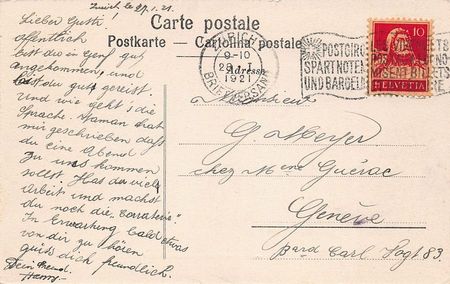 Zürich le 27.1.21.
Lieber Gusti!
offentlich
bist du in Genf gut
angekommen, und
bist du gut gereist.
Und wie geht's die
Sprache. Maman hat
mir geschrieben daß
du eine Abend
zu uns kommen
sollst. Hast du viel
Arbeit und machst
du noch die
In Erwartung bald etwas
von dir zu hören
grüsst dich freundlich.
Dein Freund.
Carte postale
Postkarte — Cartolina postale
Adresse
ZÜRICH
9-10
29.I.
1921
BRIEFVERSAND
POSTCIRO
SPART NOTEN
UND BARGELD
10
HELVETIA
Monsieur
G. Meyer
chez Mme Guérac
Genève
Bard Carl Vogt 83.